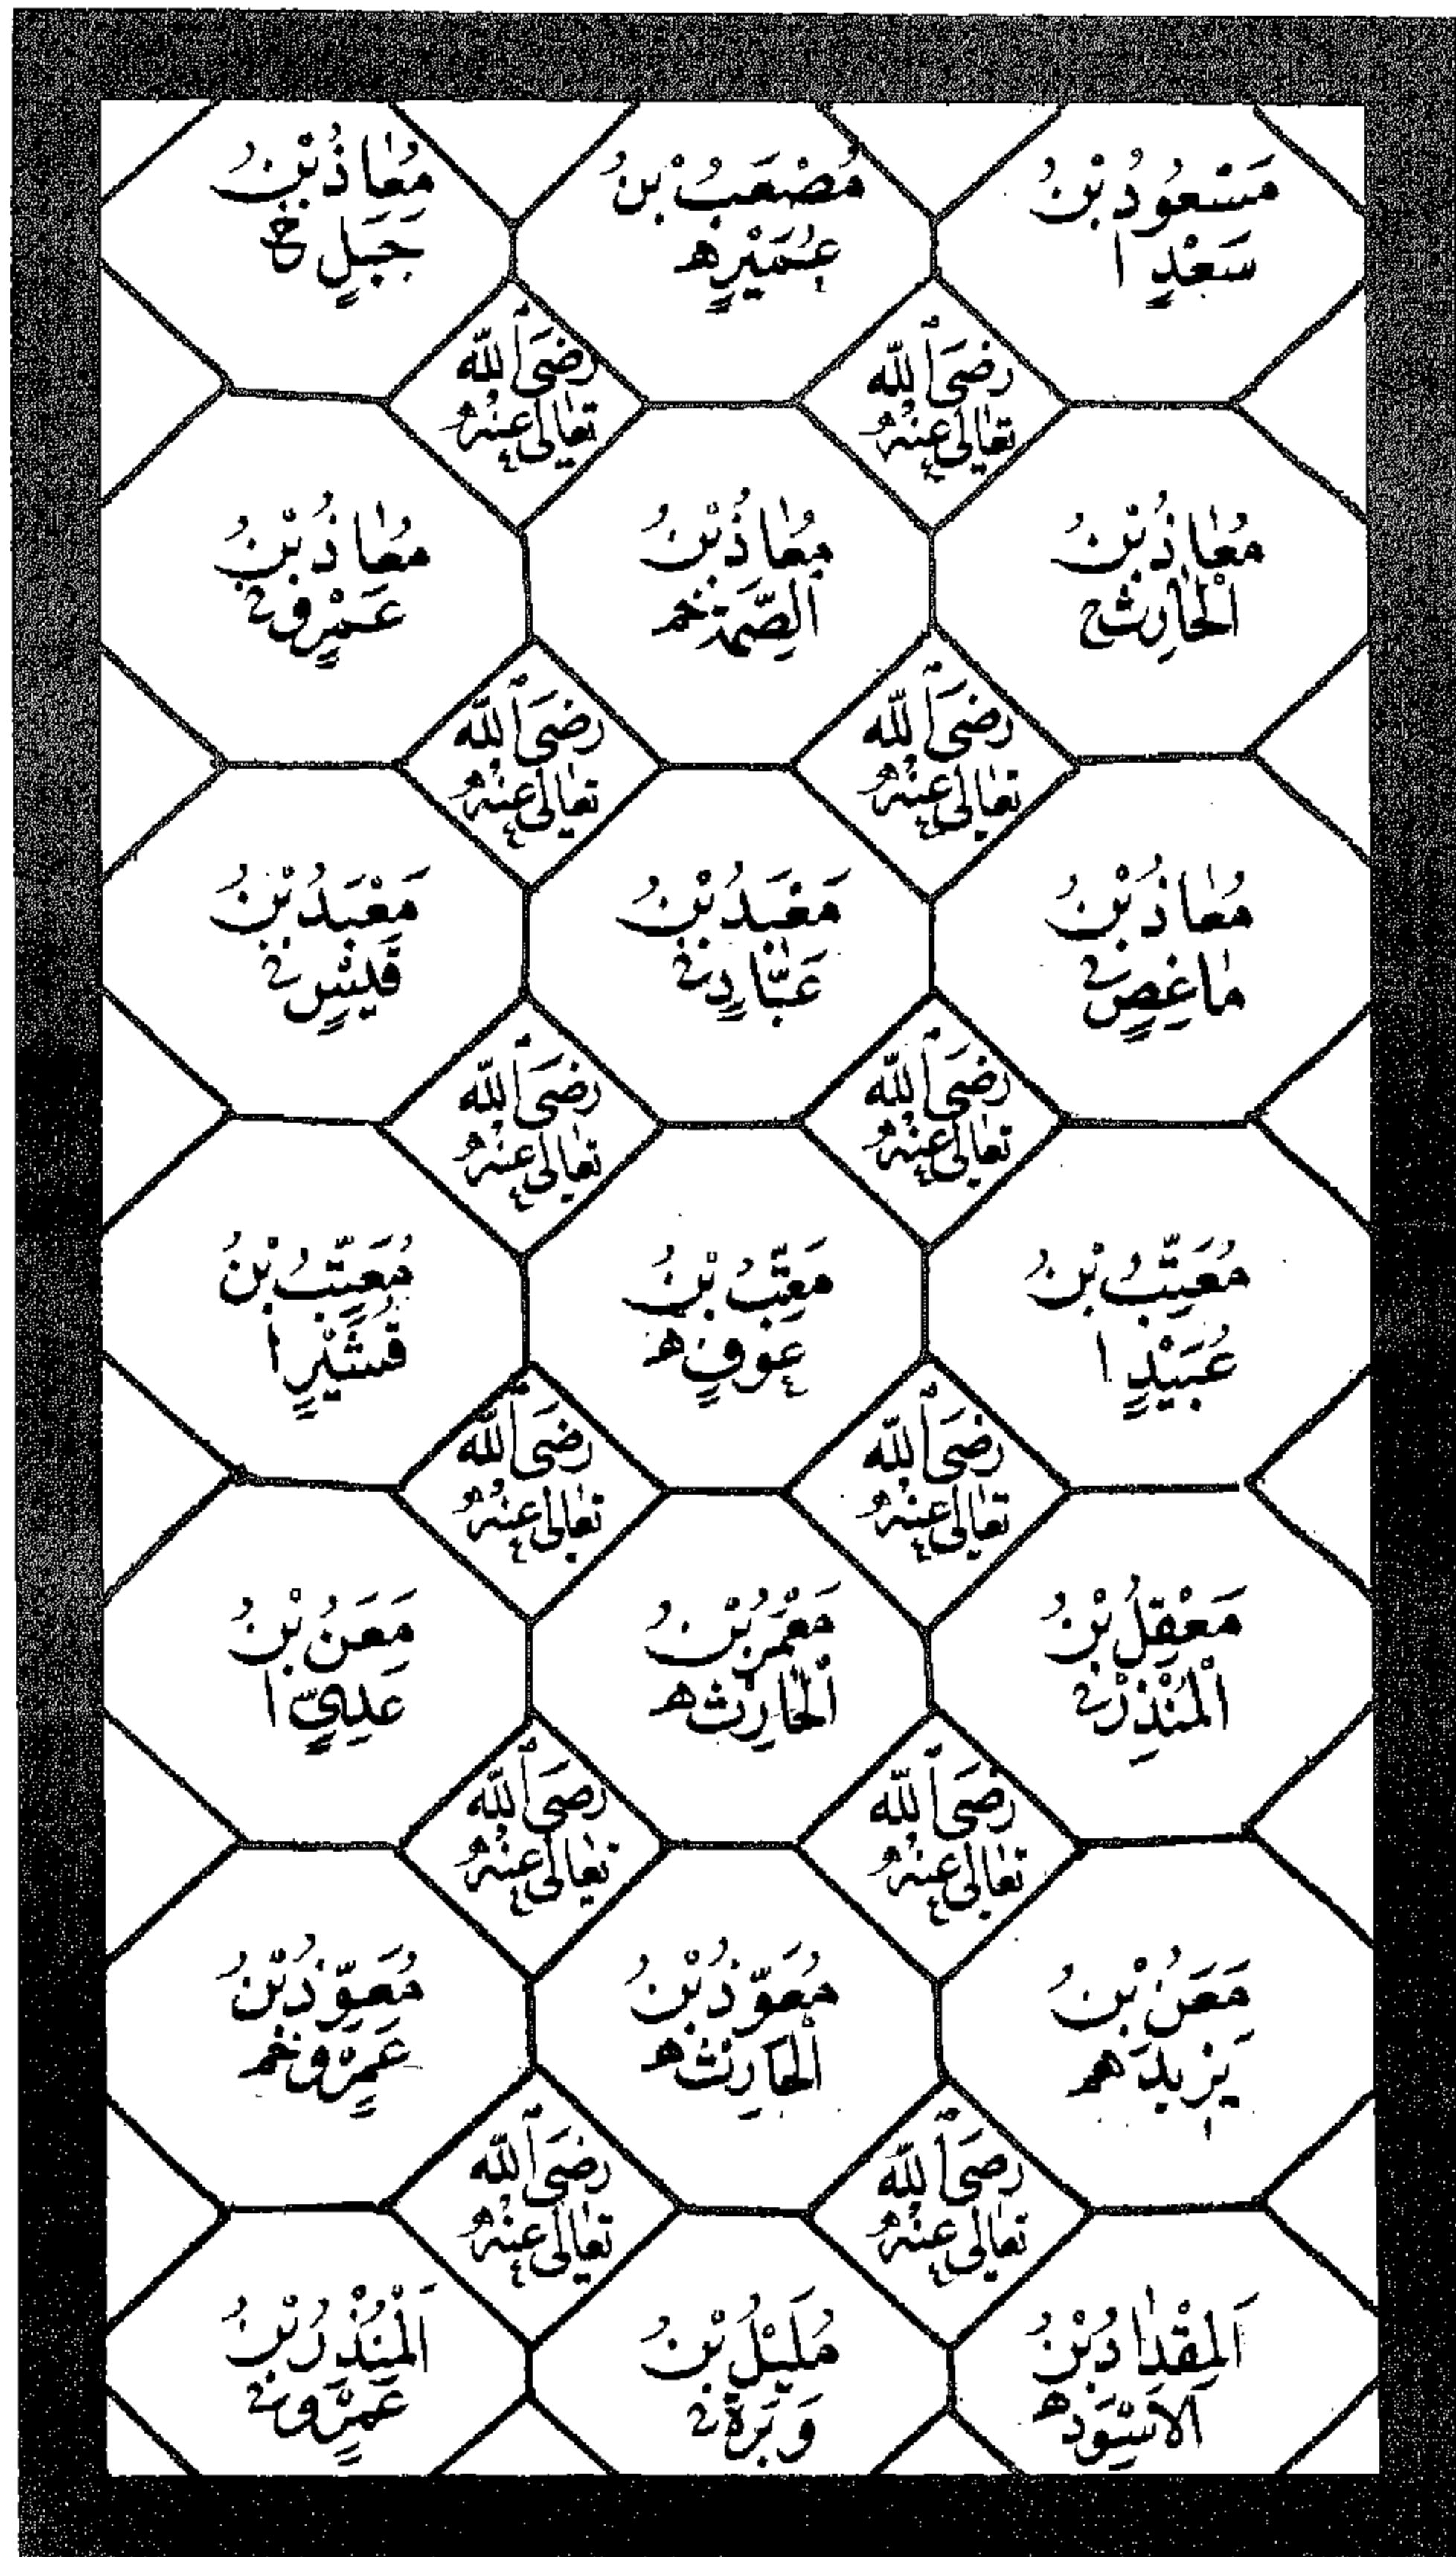 مَسْعُودُ بْنُ
سَعْدٍ ا
مُصْعَبُ بْنُ
عُمَيْرٍ ھ
مُعَاذُ بْنُ
جَبَلٍ خ
رَضِیَ اللّٰه
تَعَالٰی عَنْهُ
رَضِیَ اللّٰه
تَعَالٰی عَنْهُ
مُعَاذُ بْنُ
الْحَارِث خ
مُعَاذُ بْنُ
الصِّمَّة خم
مُعَاذُ بْنُ
عَمْرٍو ن
رَضِیَ اللّٰه
تَعَالٰی عَنْهُ
رَضِیَ اللّٰه
تَعَالٰی عَنْهُ
مُعَاذُ بْنُ
مَاعِصٍ ن
مَعْبَدُ بْنُ
عَبَّادٍ ن
مَعْبَدُ بْنُ
قَيْسٍ ن
رَضِیَ اللّٰه
تَعَالٰی عَنْهُ
رَضِیَ اللّٰه
تَعَالٰی عَنْهُ
مُعَتِّبُ بْنُ
عُبَيْدٍ ا
مُعَتِّبُ بْنُ
عَوْفٍ ھ
مُعَتِّبُ بْنُ
قُشَيْرٍ ا
رَضِیَ اللّٰه
تَعَالٰی عَنْهُ
رَضِیَ اللّٰه
تَعَالٰی عَنْهُ
مَعْقِلُ بْنُ
الْمُنْذِر ن
مَعْمَرُ بْنُ
الْحَارِث ھ
مَعَنُ بْنُ
عَدِيٍّ ا
رَضِیَ اللّٰه
تَعَالٰی عَنْهُ
رَضِیَ اللّٰه
تَعَالٰی عَنْهُ
مَعَنُ بْنُ
يَزِيدَ هم
مُعَوِّذُ بْنُ
الْحَارِث ھ
مُعَوِّذُ بْنُ
عَمْرٍو خم
رَضِیَ اللّٰه
تَعَالٰی عَنْهُ
رَضِیَ اللّٰه
تَعَالٰی عَنْهُ
اَلْمِقْدَادُ بْنُ
الْاَسْوَد ھ
مُلَيْلُ بْنُ
وَبَرَة ن
اَلْمُنْذِرُ بْنُ
عَمْرٍو ن